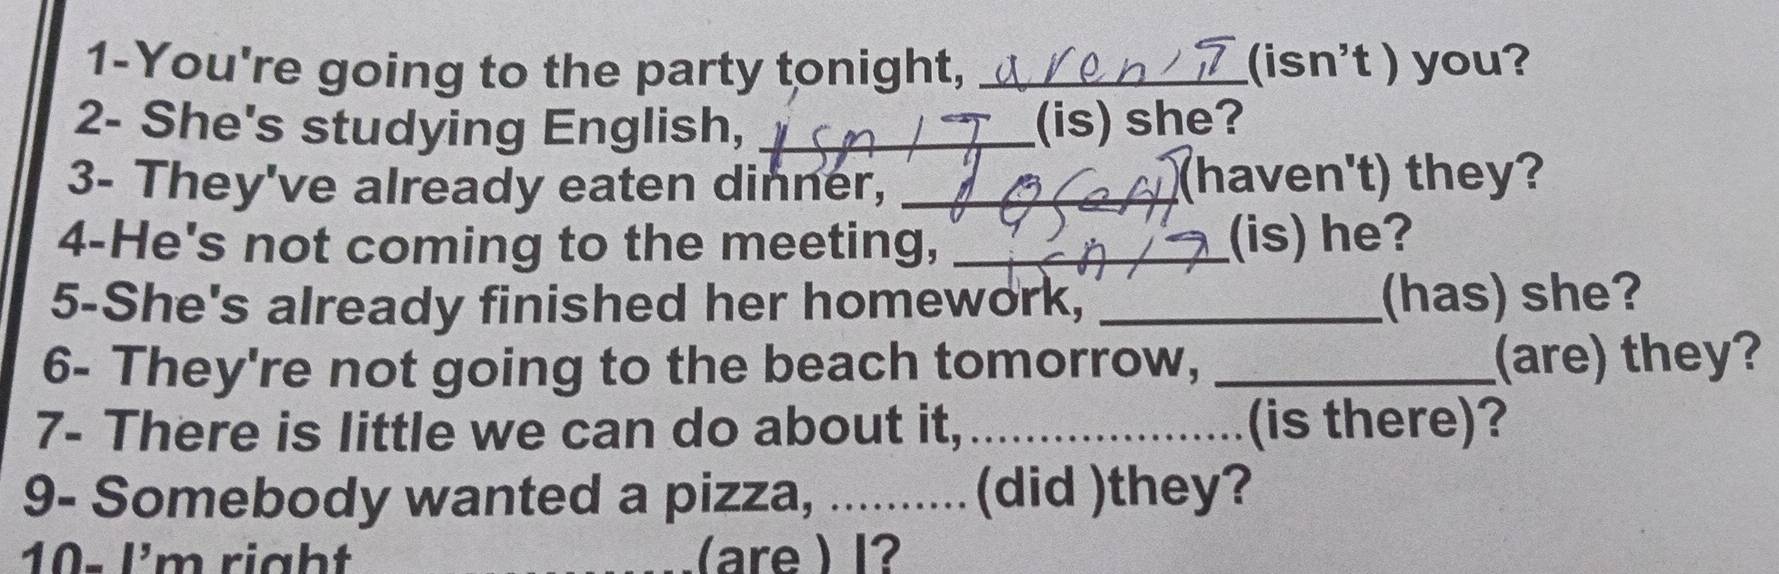 1-You're going to the party tonight, aren't (isn't ) you?
2- She's studying English, isn't (is) she?
3- They've already eaten dinner, (haven't) they?
4-He's not coming to the meeting, isn't (is) he?
5-She's already finished her homework, ____________(has) she?
6- They're not going to the beach tomorrow, ____________(are) they?
7- There is little we can do about it,.....................(is there)?
9- Somebody wanted a pizza, .......... (did )they?
10- I'm right ....................(are ) I?